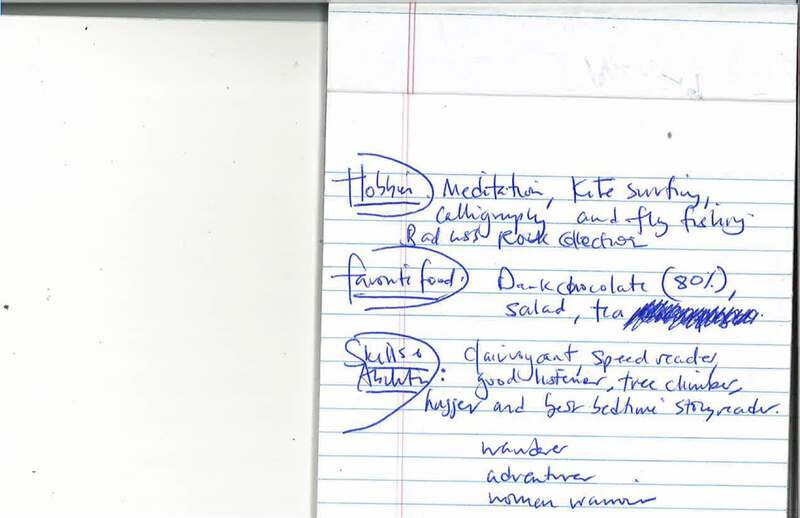 Hobbies. Meditation, kite surfing,
calligraphy and fly fishing
Bad ass Rock collection
favorite food: Dark chocolate (80%),
salad, tea
Skills & clairvoyant, speed reader,
Abilities: good listener, tree climber,
hugger and best bedtime story reader.
wanderer
adventurer
women warrior